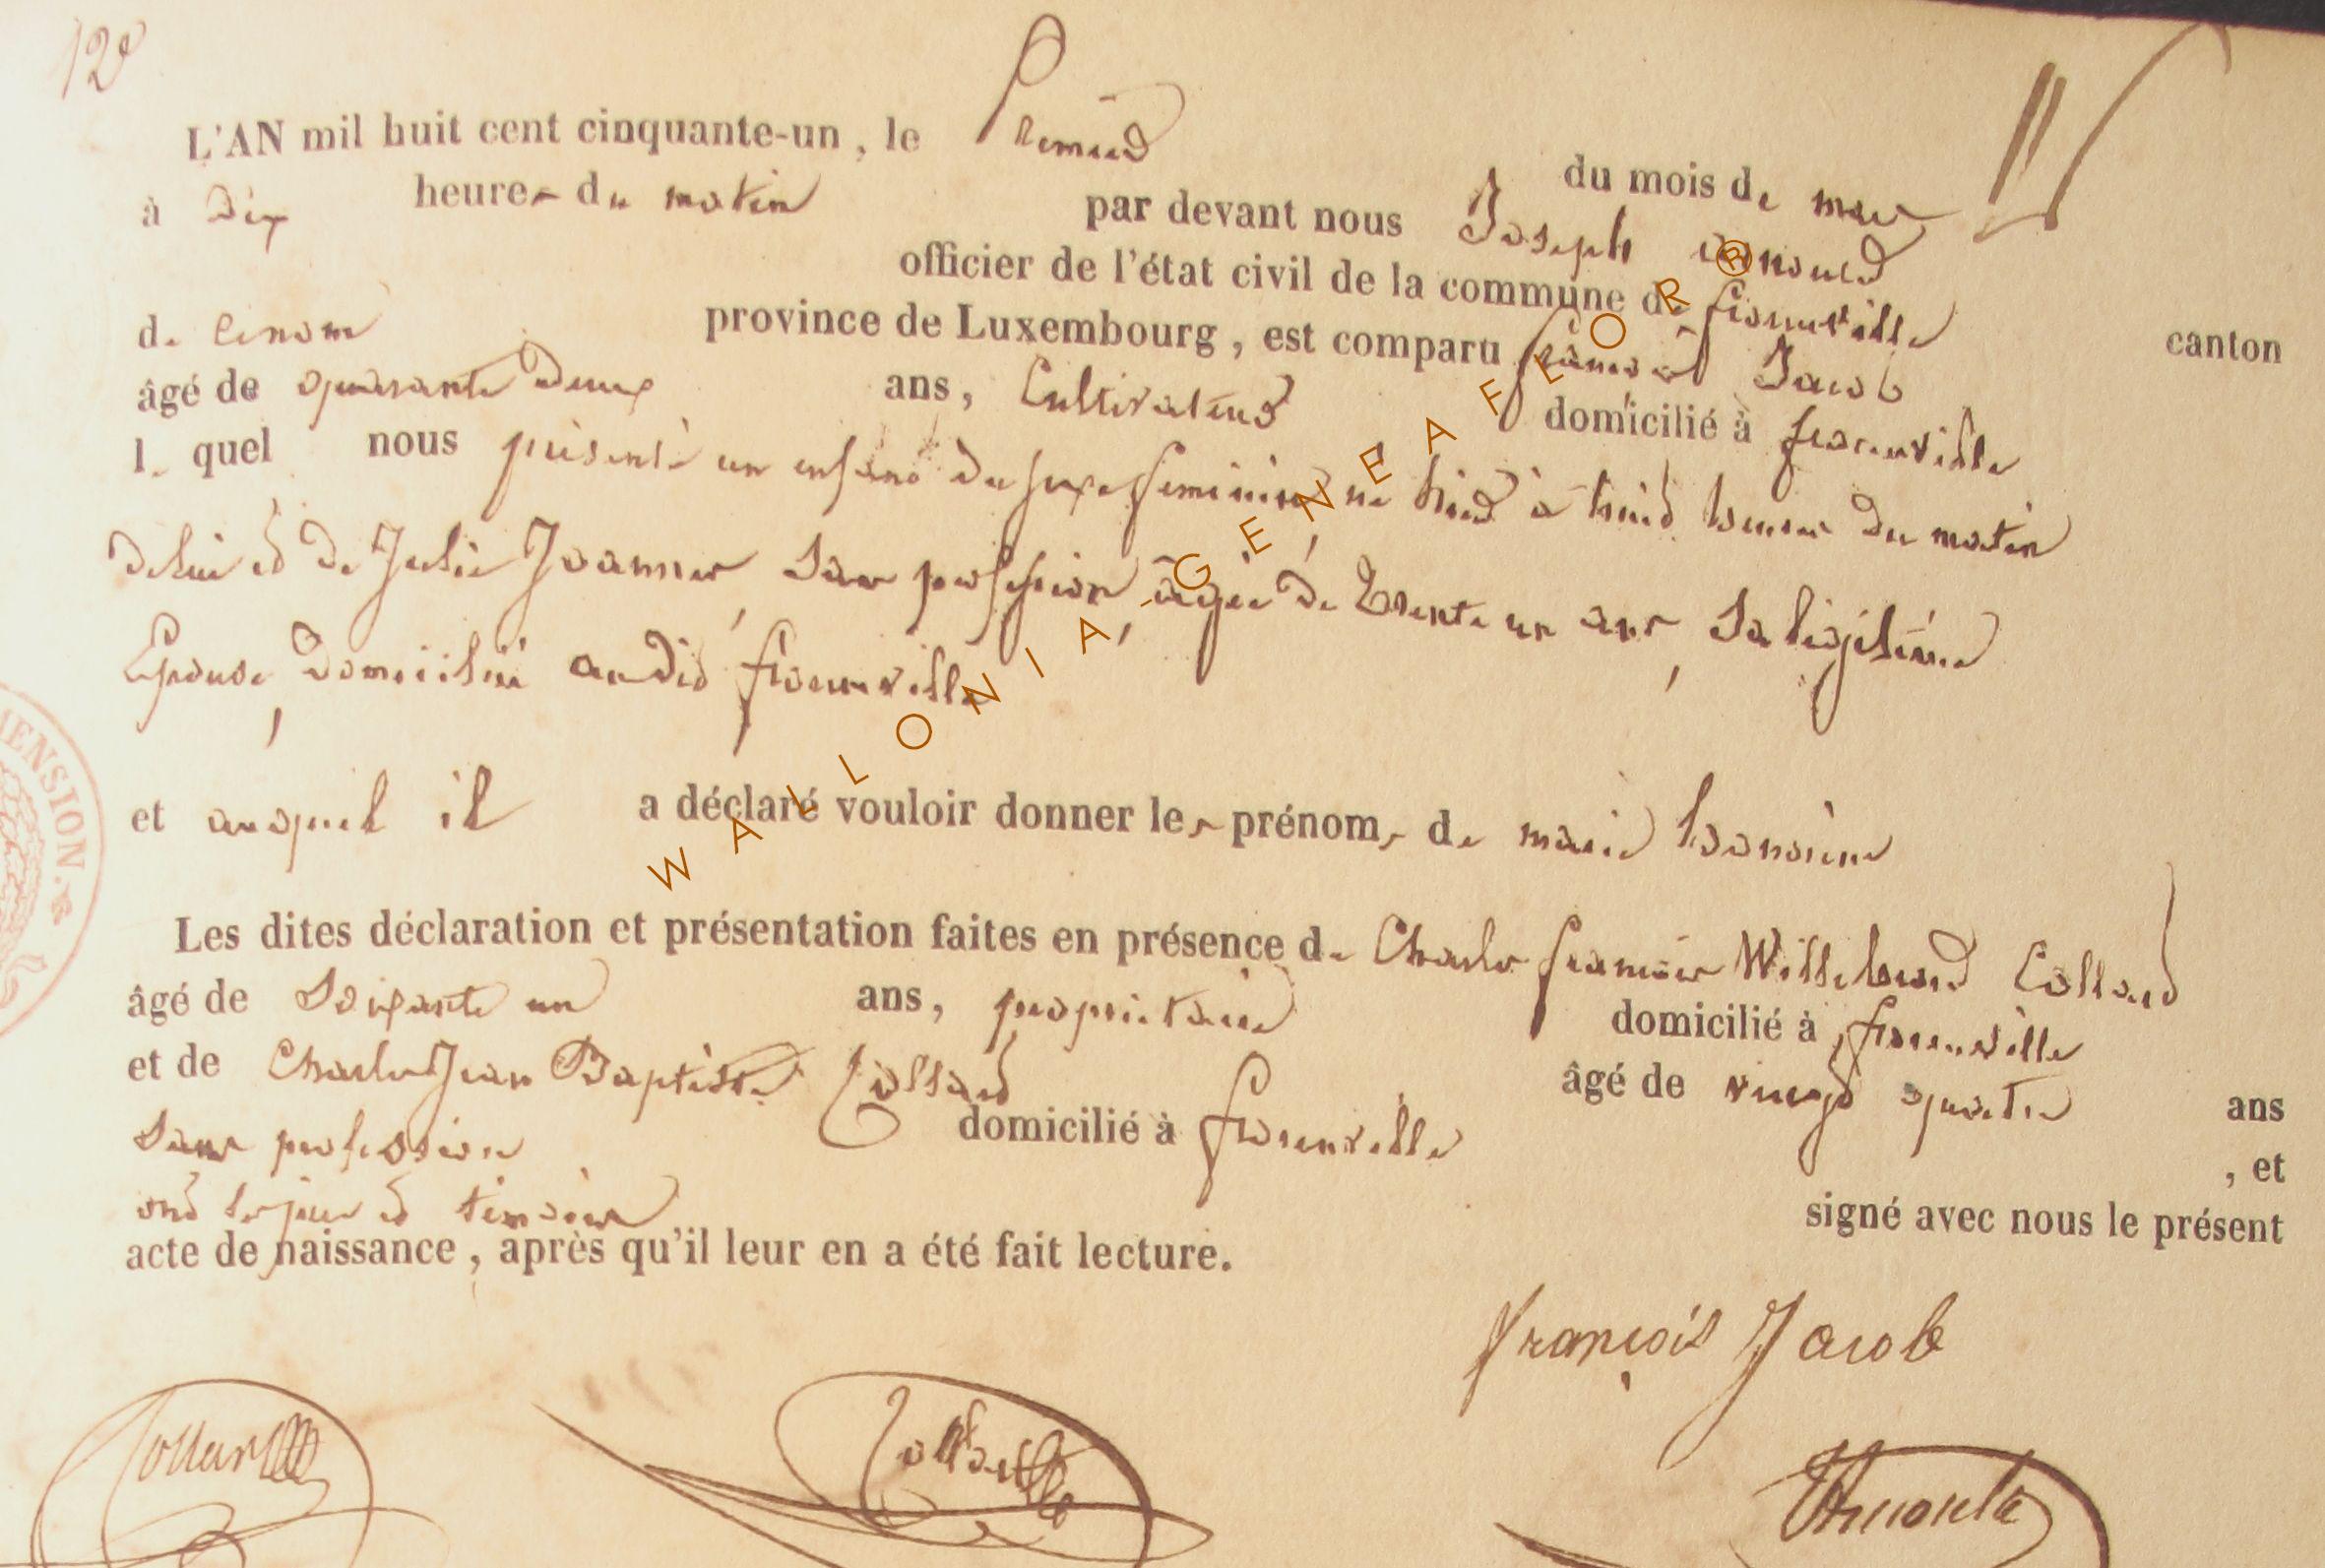 12e
L'AN mil huit cent cinquante-un, le Premier du mois de mars
à dix heures du matin par devant nous Joseph arnould
officier de l'état civil de la commune de florenville canton
de province de Luxembourg, est comparu françois Jacob
âgé de quarante deux ans, Cultivateur domicilié à florenville
le quel nous présente un enfant du sexe feminin, né hier à huit heures du matin
de lui et de Julie Joannes, sans profession, agée de Trente un ans, Sa légitime
Epouse, domiciliée audit florenville
et auquel il a déclaré vouloir donner les prénoms de marie honorine
Les dites déclaration et présentation faites en présence de Charles françois Willebrord Collard
âgé de Soixante un ans, propriétaire domicilié à florenville
et de Charles Jean Baptiste Collard âgé de vingt quatre ans
Sans profession domicilié à florenville , et
ont le père et témoins signé avec nous le présent
acte de naissance, après qu'il leur en a été fait lecture.
françois Jacob
Collard
Collard
Arnould
MENSION.
WALLONIA-GENEAFLOR®